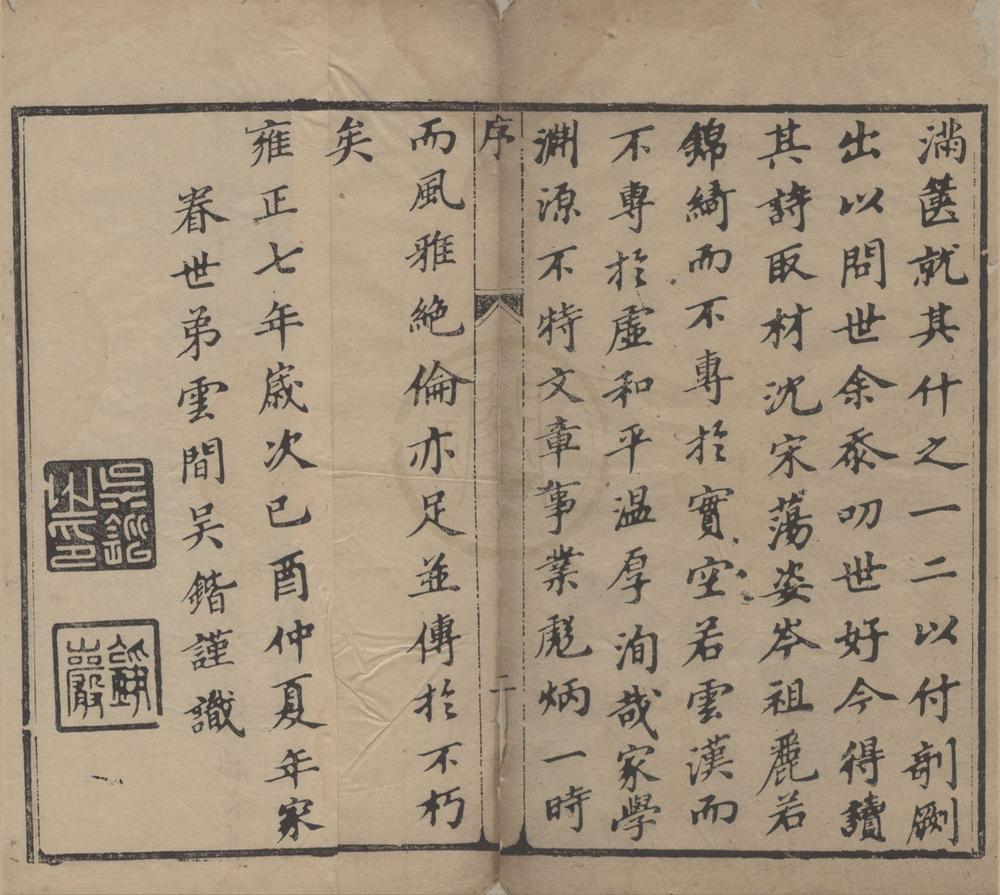 滿篋就其什之一二以付剞劂
出以問世余忝叨世好今得讀
其詩取材沈宋蕩姿岑祖麗若
錦綺而不專於實空若雲漢而
不專於虛和平温厚洵哉家學
淵源不特文章事業彪炳一時
序
二
而風雅絶倫亦足並傳於不朽
矣
雍正七年歲次己酉仲夏年家
眷世弟雲間吴鍇謹識